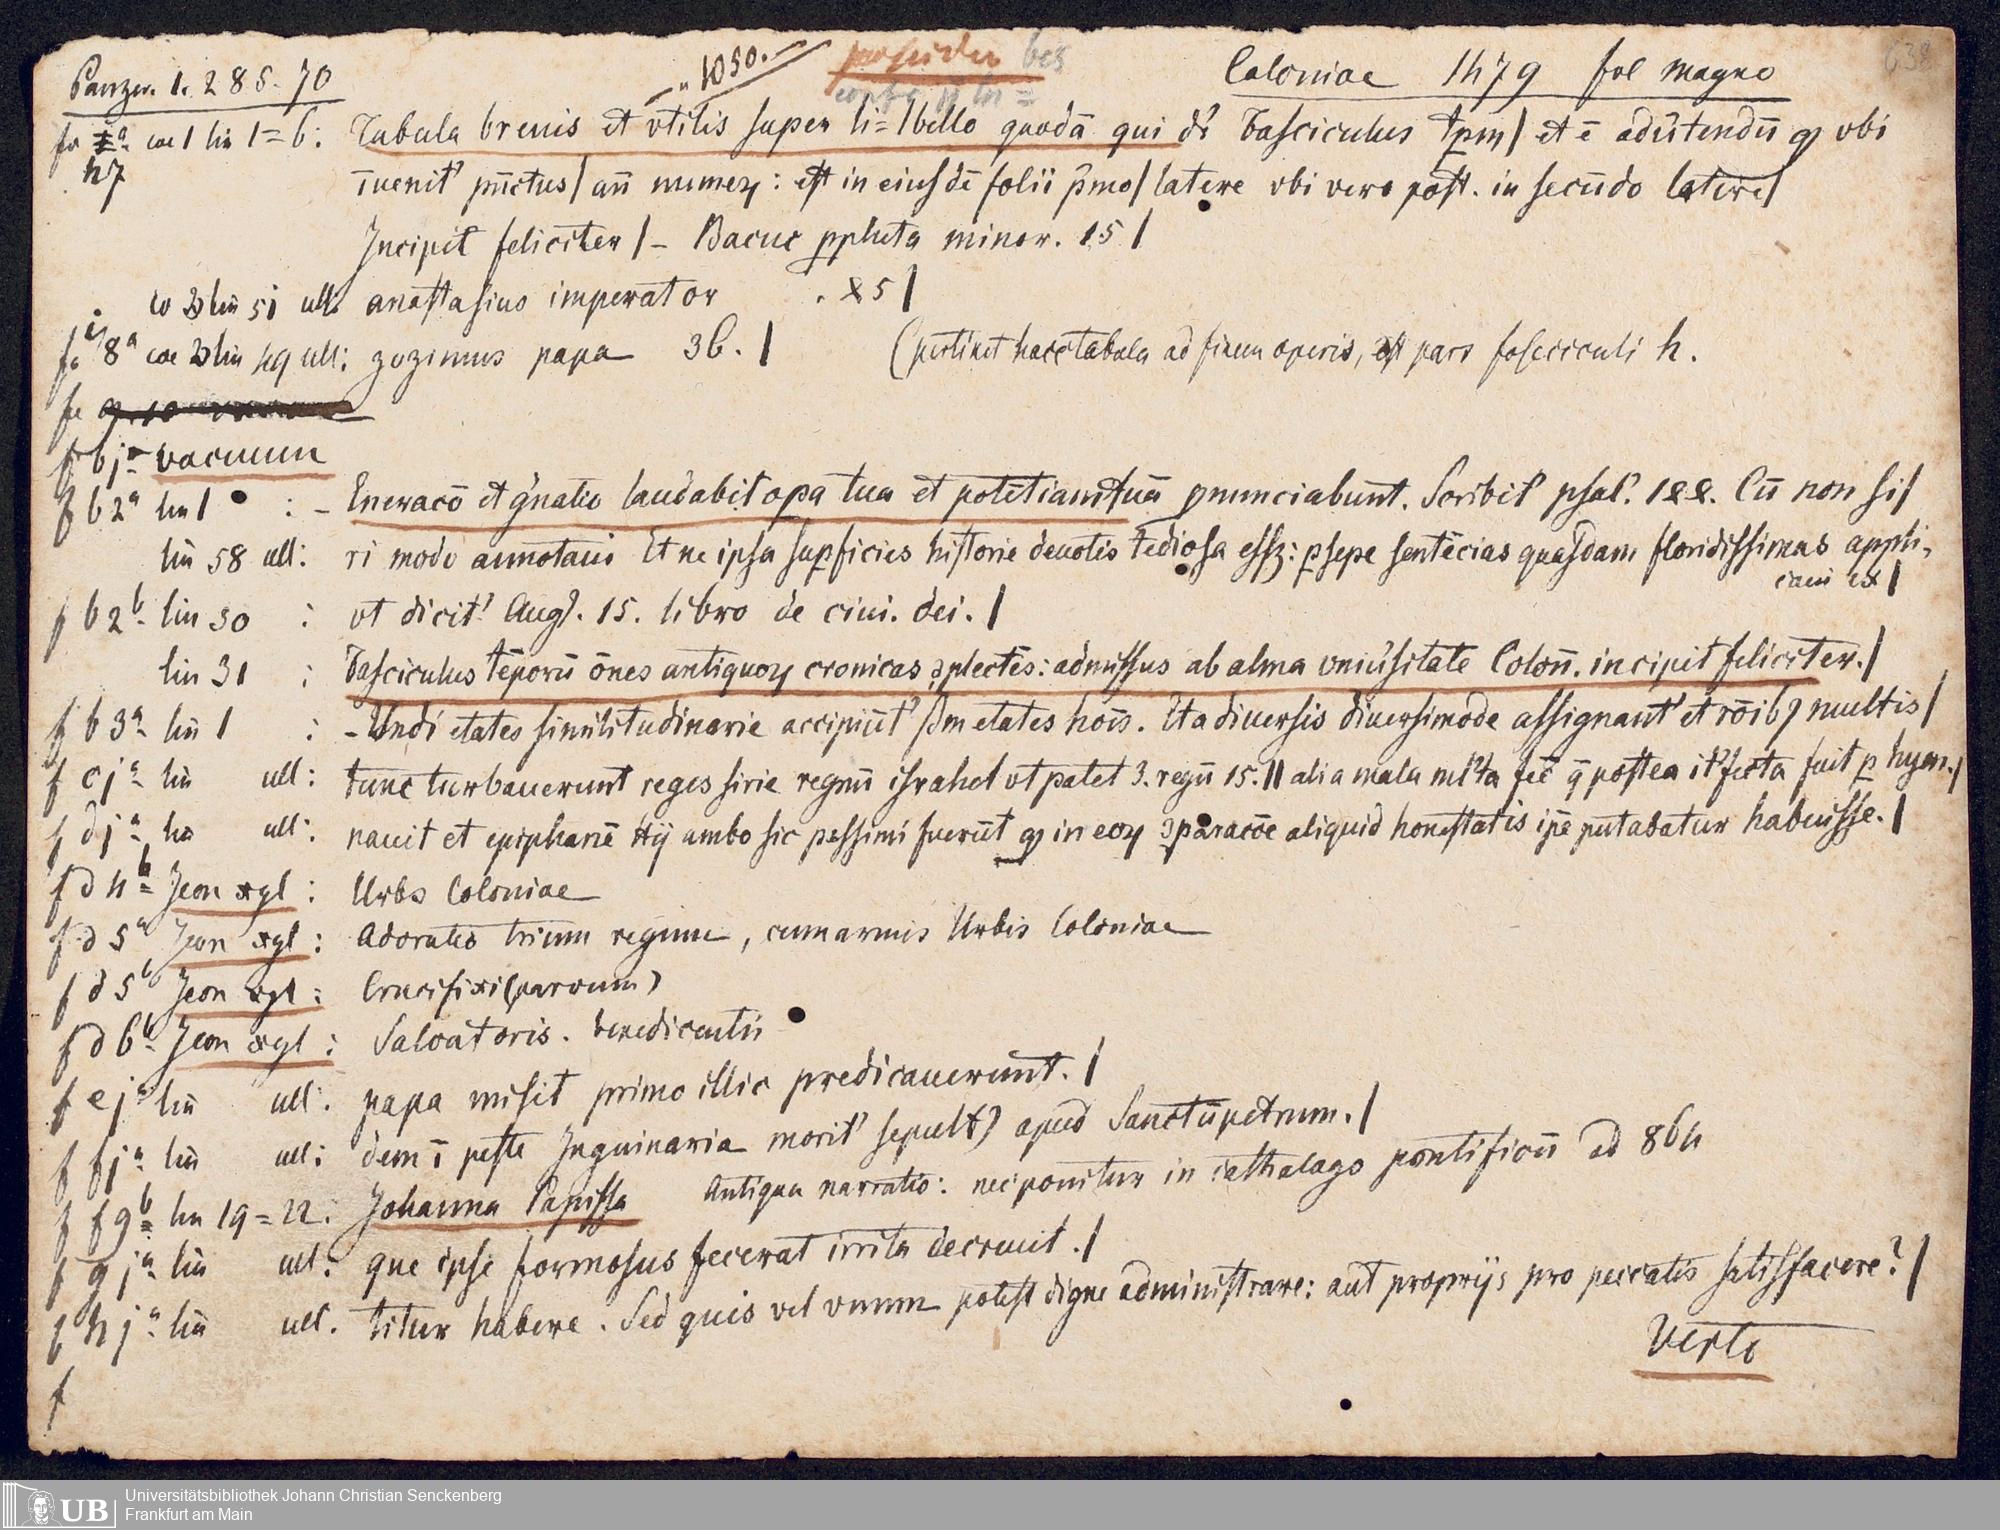 Panzer. 1. 285. 70
1050.
Coloniae 1479 fol magno
638
lin 1=6: Tabula breuis et vtilis super li=|bello quodā qui dr̄ Fasciculus tpm| et ē adūtendū ꝙ vbi
h7 īuenit' pūctus| añ numeꝝ: est in eiusdē folii p̄mo| latere vbi vero post. in secūdo latere|
Incipit feliciter| – Bacuc ꝓpheta minor. 15|
co 2 lin 51 ult. anastasius imperator . 25|
8a coe 2 lin 49 ult: zozimus papa 36.| (pertinet haec tabula ad finem operis, est pars fasciculi h.
f bja vacuum
f b2a lin 1 : – Eneracō et g'natio laudabit opa tua et potētiam tuā ꝓnunciabunt. Scribit' psal'. 144. Cū non si|
lin 58 ult: ri modo annotaui Et ne ipsa supficies historie deuotis tediosa essꝫ: ꝑsepe sentēcias quasdam floridissimas appli-
caui ex|
f b2b lin 30 : vt dicit' Aug'. 15. libro de ciui. dei.|
lin 31 : Fasciculus tēporū ōnes antiquoꝝ cronicas ꝯplectēs: admissus ab alma vniu'sitate Colon̄. incipit feliciter.|
f b3a lin 1 : – Undi etates similitudinarie accipiūt' sm etates hoīs. Et a diuersis diuersimode assignant' et rōib9 multis|
f cja lin ult: tunc turbauerunt reges sirie regnū israhel vt patet 3. regū 15. || alia mala ml'ta fec̄ q̄ postea it' fcta fuit ꝑ hyer.|
f dja lin ult: nauit et epiphanē Hij ambo sic pessimi fuerūt ꝙ in eoꝝ ꝯparacōe aliquid honestatis ip̄e putabatur habuisse.|
f d4b Icon xyl: Urbs Coloniae
f d5a Icon xyl: Adoratio trium regum, cum armis Urbis Coloniae
f d5b Icon xyl: Crucifixi (parvum)
f d6b Icon xyl: Salvatoris. benedicentis
f eja lin ult: papa misit primo illic predicauerunt.|
f fja lin ult: dem ī peste Inguinaria morit' sepult9 apud Sanctūpetrum.|
f f9b lin 19=22. Johanna Papissa Antiqua narratio: nec ponitur in cathalago pontificū ad 864
f gja lin ult: que ipse formosus fecerat irrita decreuit.|
f hja lin ult. titur habere. Sed quis vel vnum potest digne administrare: aut proprijs pro peccatis satisfacere?|
Verte
f
UB Universitätsbibliothek Johann Christian Senckenberg
Frankfurt am Main